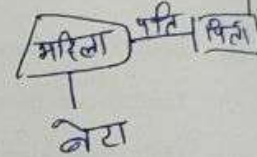 महिला पति पिता
बेटा